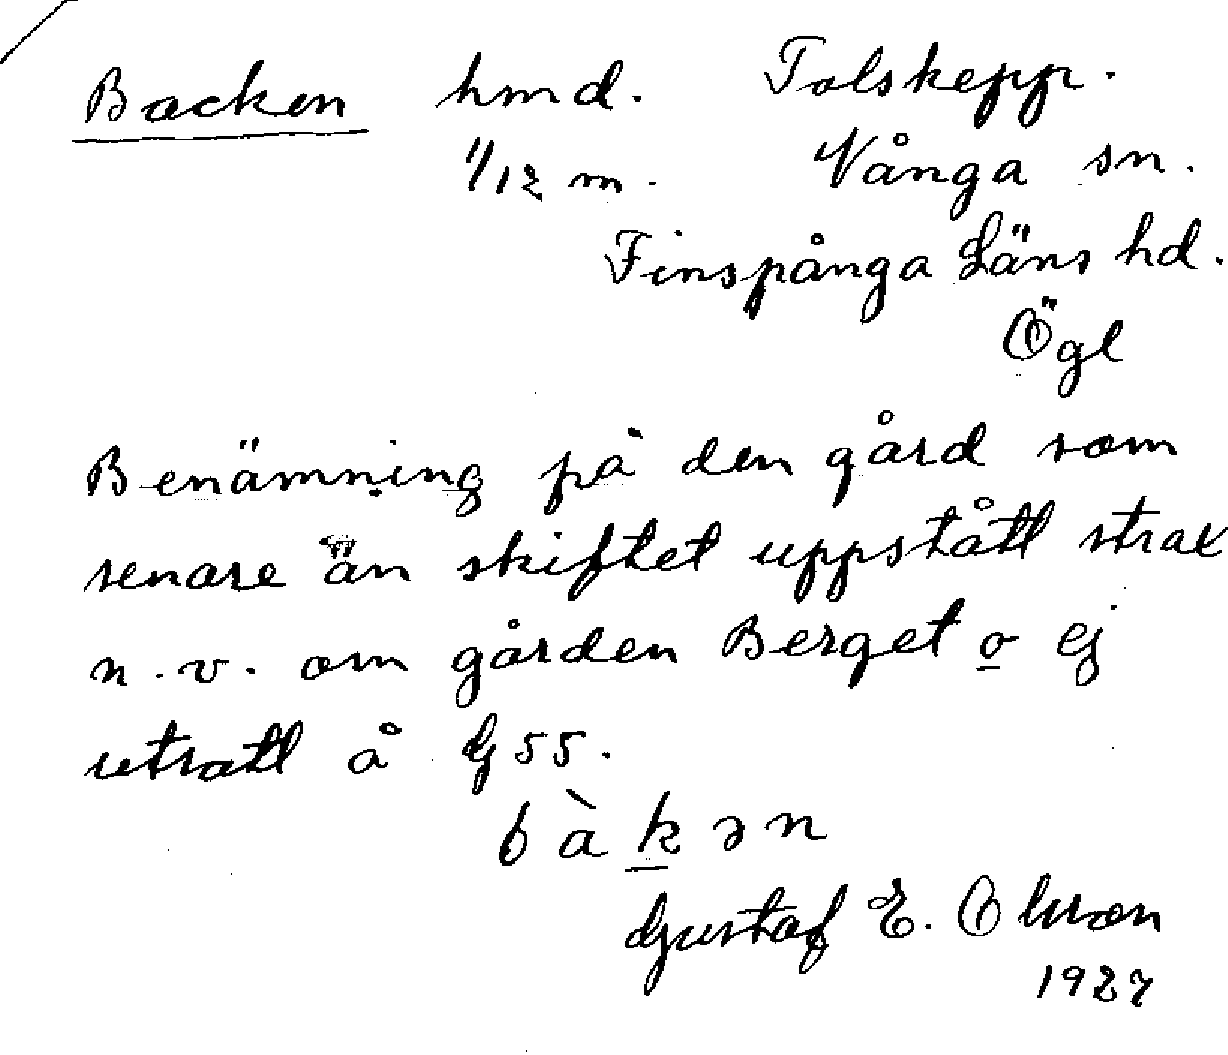 Backen hmd. Tolskepp.
1/12 m. Vånga sn.
Finspånga Läns hd.
Ögl
Benämning på den gård som
senare än skiftet uppstått strax
n.v. om gården Berget o ej
utsatt å G 55.
bàkən
Gustaf E. Olsson
1927